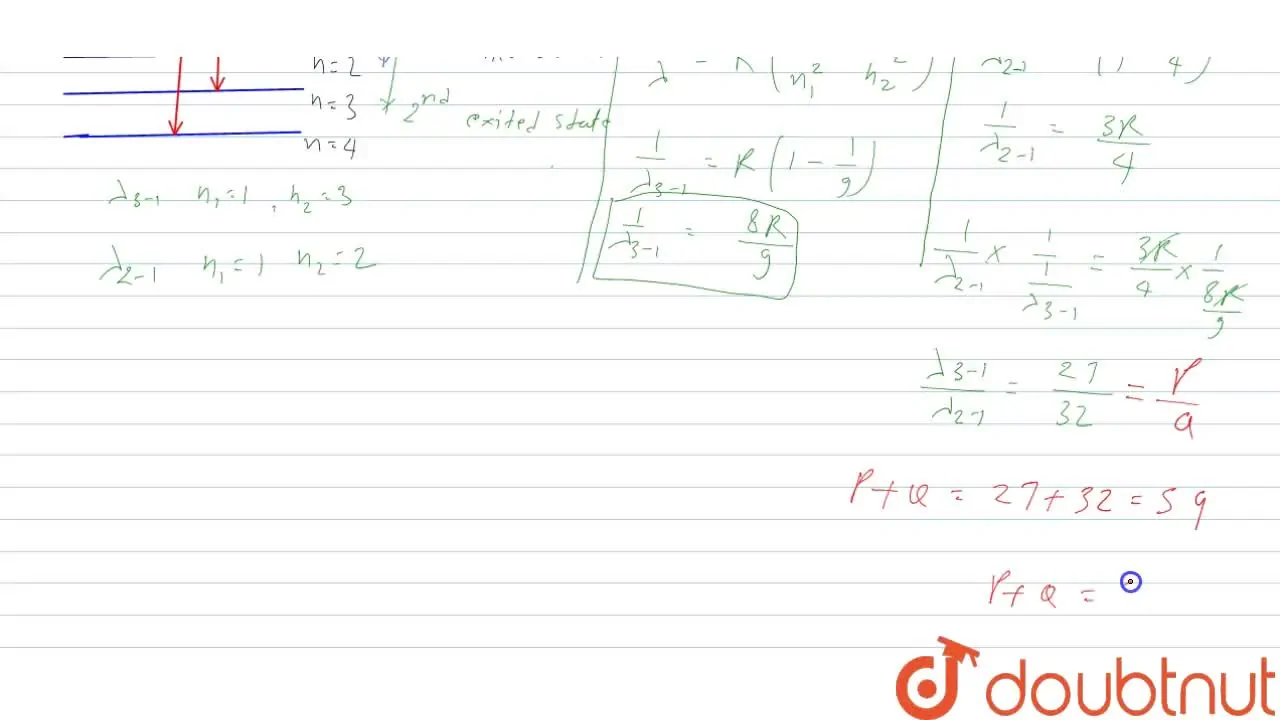 n=2
n=3
n=4
2nd
exited state
λ3-1 n1=1, n2=3
λ2-1 n1=1 n2=2
1/λ3-1 = R(1 - 1/9)
1/λ3-1 = 8R/9
1/λ2-1 = 3R/4
1/λ2-1 × 1/(1/λ3-1) = 3R/4 × 1/(8R/9)
λ3-1/λ2-1 = 27/32 = P/Q
P+Q = 27+32 = 59
P+Q =
doubtnut